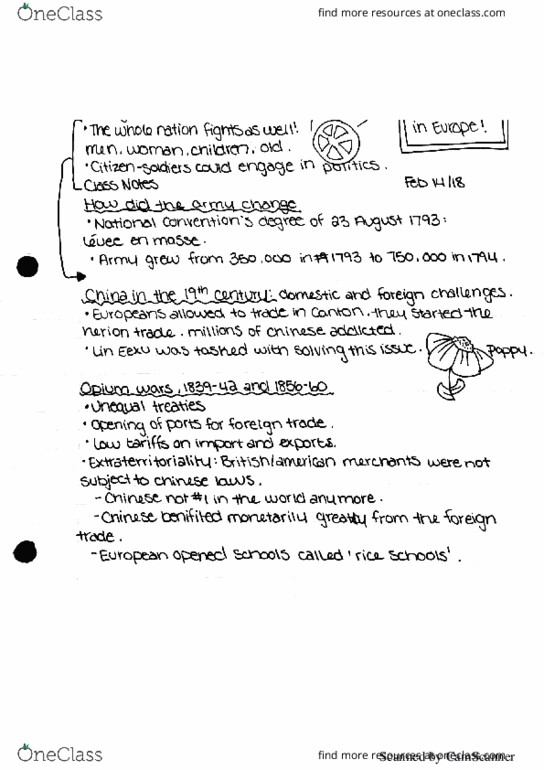 OneClass
find more resources at oneclass.com
• The whole nation fights as well!
men, woman, children, old.
in Europe!
• Citizen-soldiers could engage in politics.
Class Notes
Feb 14/18
How did the army change
• National Convention's degree of 23 August 1793:
Lévee en masse.
• Army grew from 350,000 in 1793 to 750,000 in 1794.
China in the 19th century: domestic and foreign challenges.
• Europeans allowed to trade in Canton. they started the
herion trade. millions of chinese addicted.
• Lin Eexu was tasked with solving this issue.
Poppy.
Opium wars, 1839-42 and 1856-60
• Unequal treaties
• Opening of ports for foreign trade.
• Low tariffs on import and exports.
• Extraterritoriality: British/american merchants were not
subject to chinese laws.
- Chinese not #1 in the world anymore.
- Chinese benifited monetarily greatly from the foreign
trade.
- European opened schools called 'rice schools'.
OneClass
find more resources at oneclass.com
Scanned by CamScanner